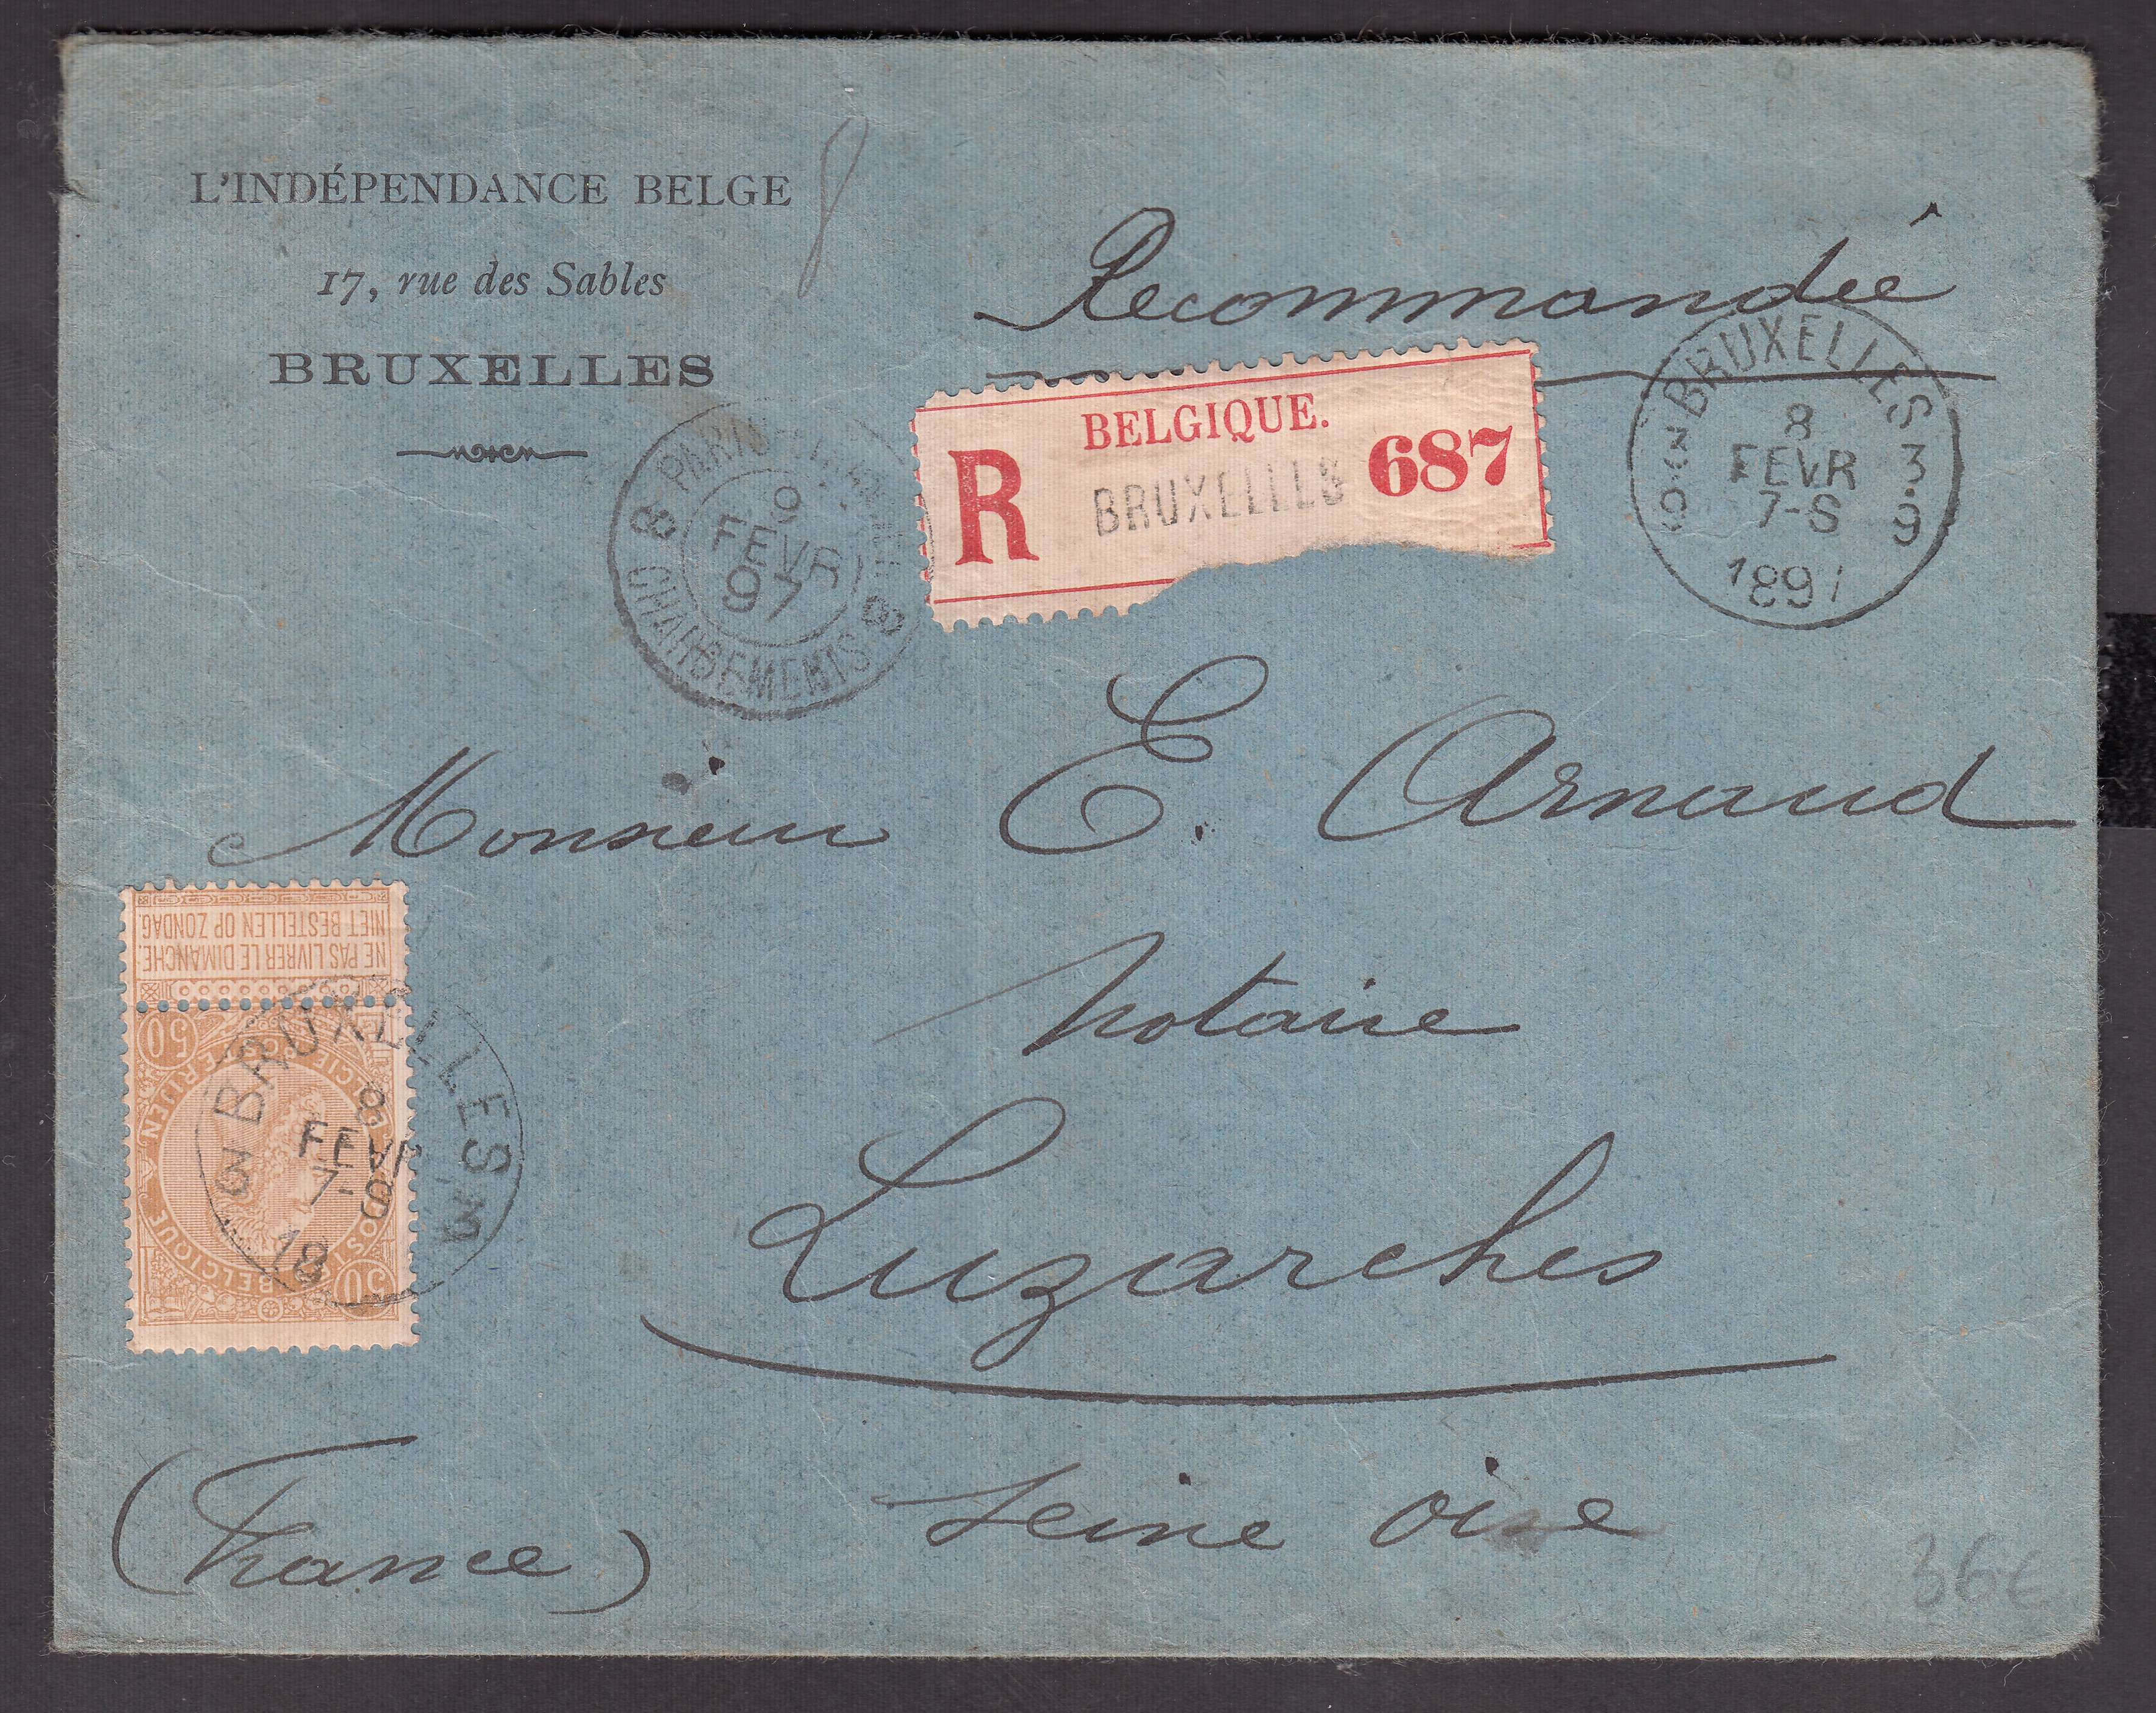 L'INDÉPENDANCE BELGE
17, rue des Sables
BRUXELLES
8
Recommandée
BELGIQUE.
R
BRUXELLES
687
BRUXELLES
8
FEVR
7-S
3
9
189
PARIS
9
FEVR
97
CHARGEMENTS
Monsieur E. Arnaud
Notaire
Luzarches
Seine Oise
(France)
NE PAS LIVRER LE DIMANCHE.
NIET BESTELLEN OP ZONDAG.
50
POSTERIJEN
BELGIQUE
50
BRUXELLES
8
FEVR
7-S
18
3
3
36€